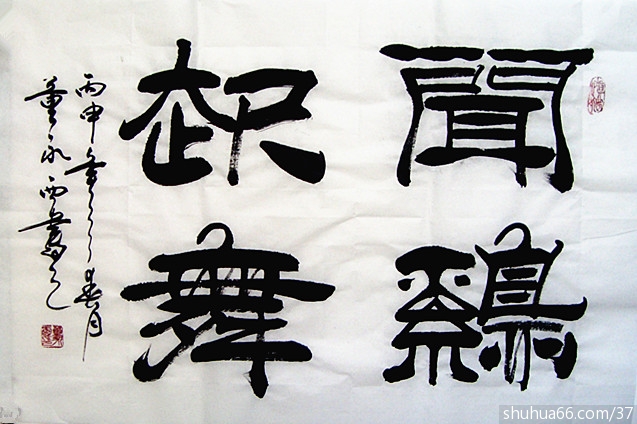 聞鷄
起舞
丙申年春月
董永西書之
shuhua66.com/37